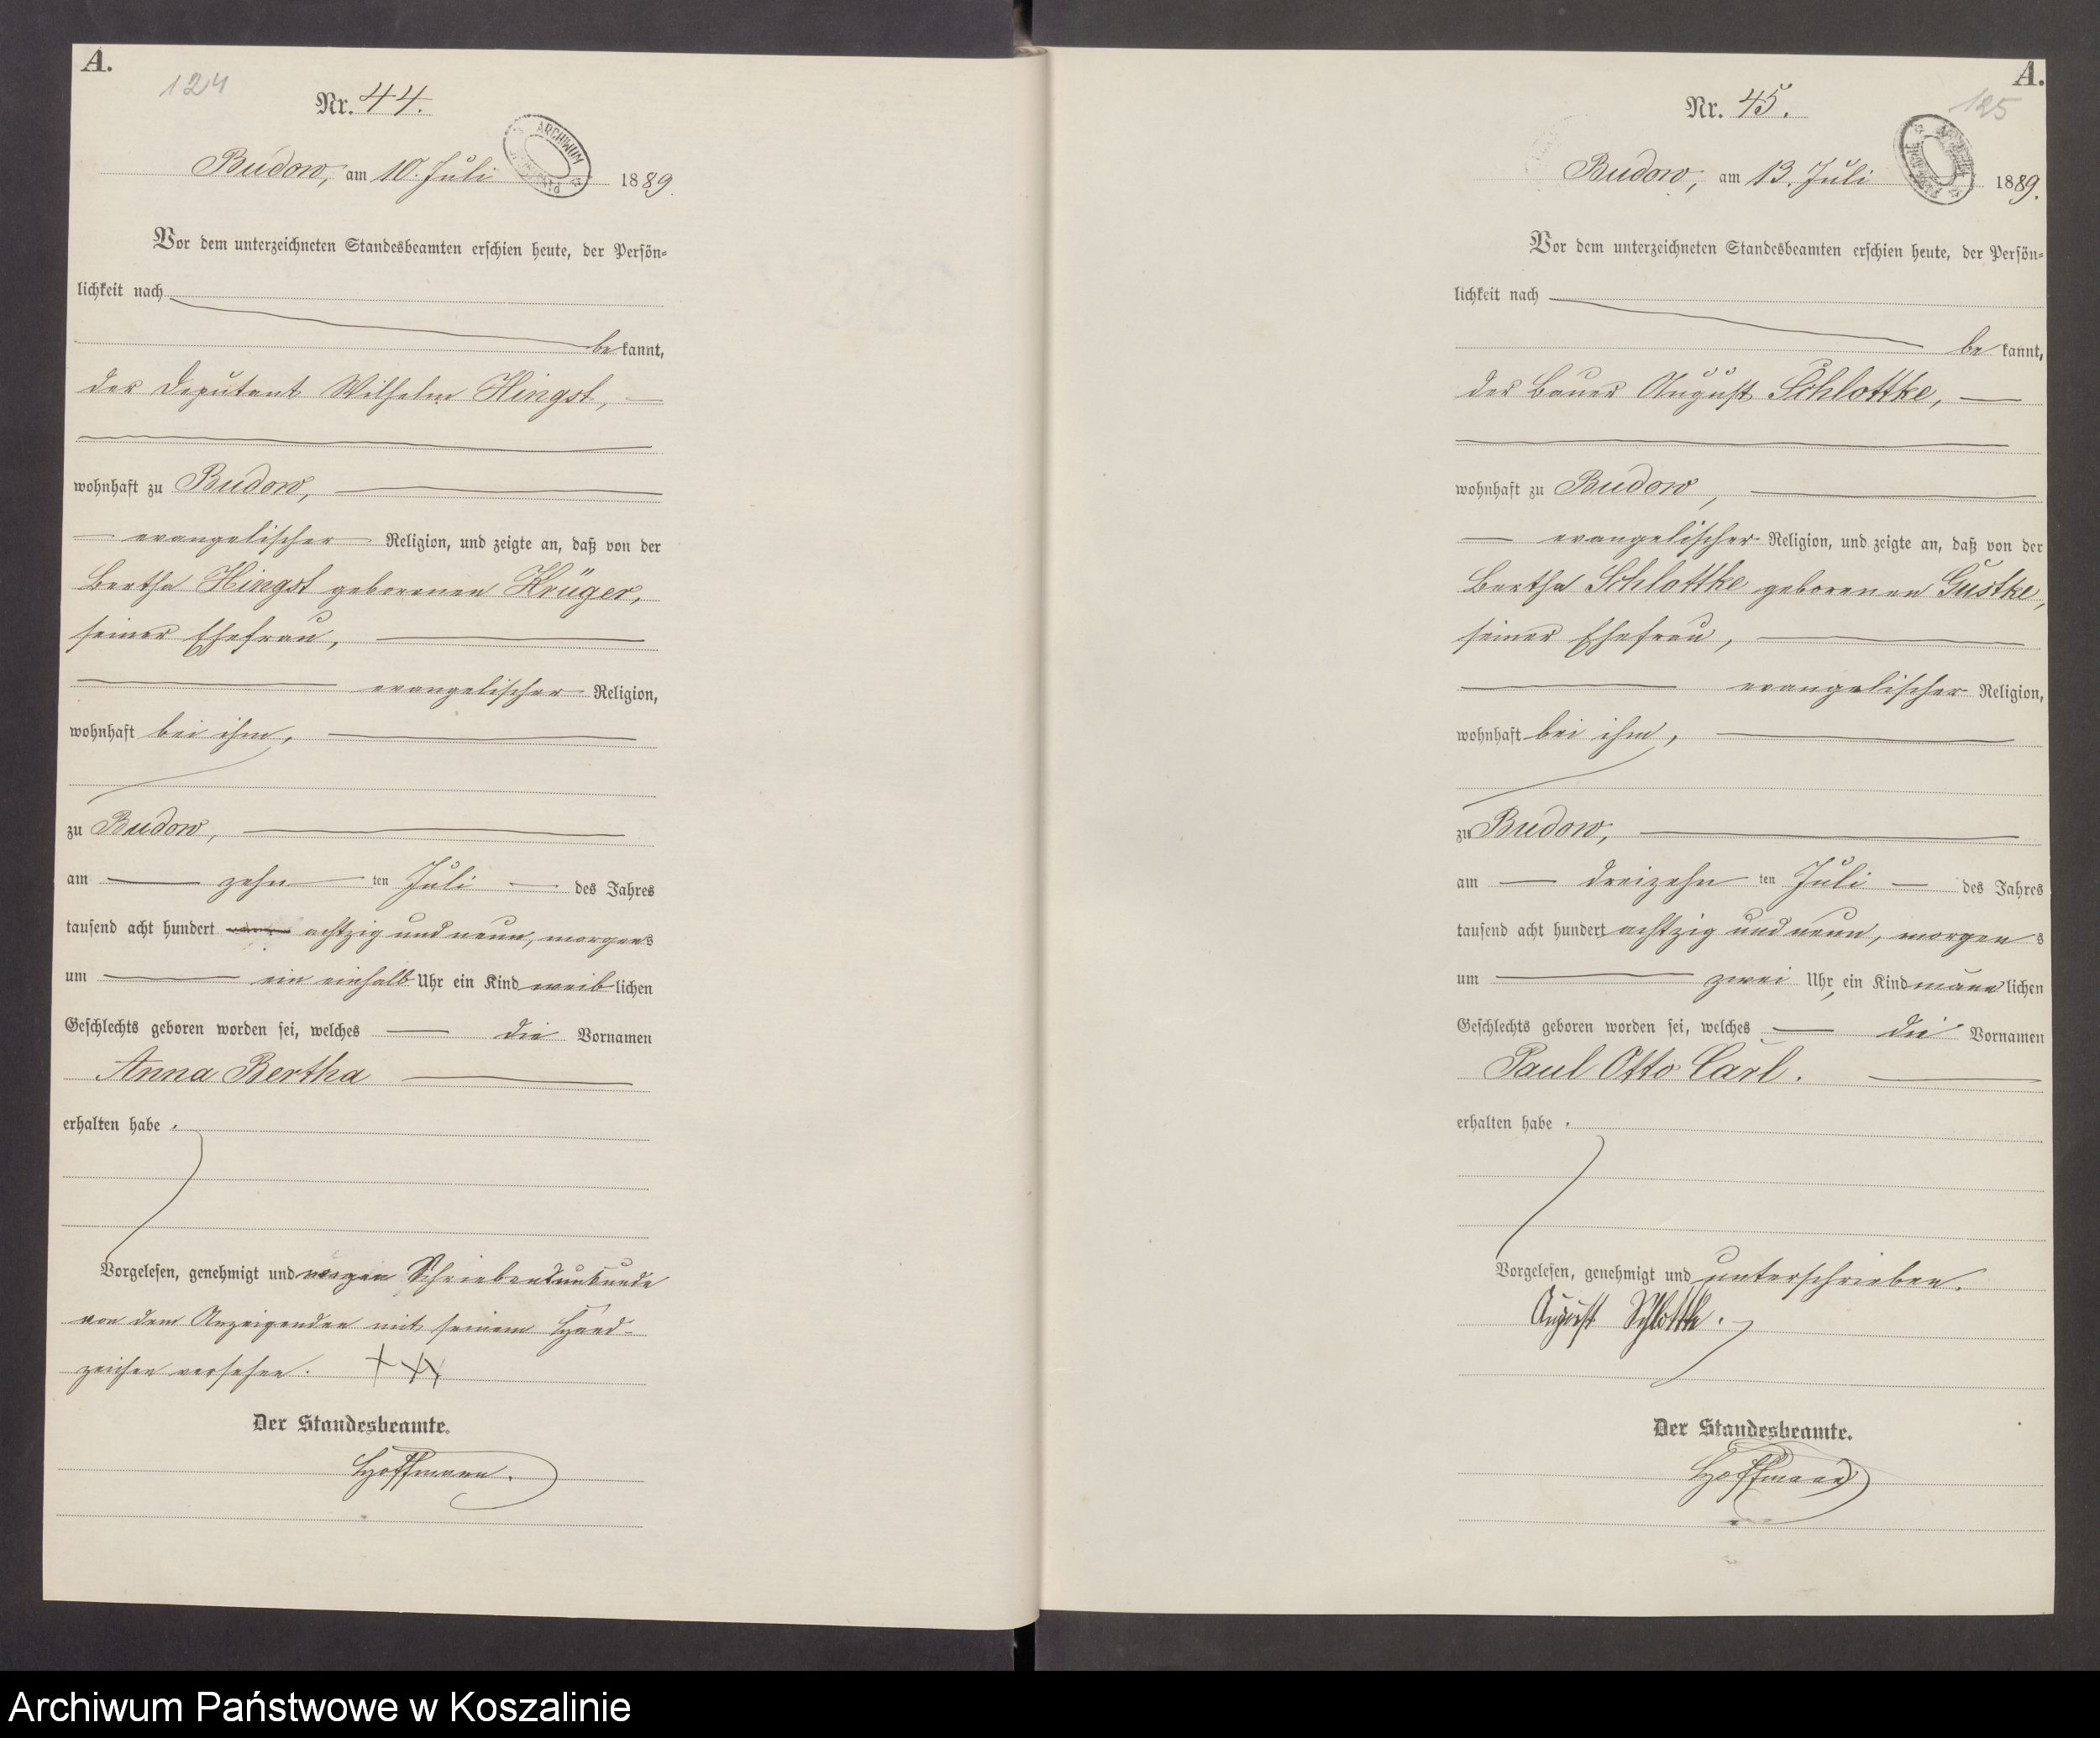 A.
124
Nr. 44.
ARCHIWUM
Budow, am 10. Juli 1889.
Vor dem unterzeichneten Standesbeamten erschien heute, der Persön-
lichkeit nach
be kannt,
der Deputant Wilhelm Hingst,
wohnhaft zu Budow,
evangelischer Religion, und zeigte an, daß von der
Bertha Hingst geborenen Krüger,
seiner Ehefrau,
evangelischer Religion,
wohnhaft bei ihm,
zu Budow,
am zehn ten Juli des Jahres
tausend acht hundert achtzig und neun, morgens
um ein einhalb Uhr ein Kind weib lichen
Geschlechts geboren worden sei, welches die Vornamen
Anna Bertha
erhalten habe.
Vorgelesen, genehmigt und wegen Schreibensunkunde
von dem Anzeigenden mit seinem Hand-
zeichen versehen. +++
Der Standesbeamte.
Hoffmann.
A.
125
Nr. 45.
Budow, am 13. Juli 1889.
Vor dem unterzeichneten Standesbeamten erschien heute, der Persön-
lichkeit nach
be kannt,
der Bauer August Schlottke,
wohnhaft zu Budow,
evangelischer Religion, und zeigte an, daß von der
Bertha Schlottke geborenen Gustke,
seiner Ehefrau,
evangelischer Religion,
wohnhaft bei ihm,
zu Budow,
am dreizehn ten Juli des Jahres
tausend acht hundert achtzig und neun, morgens
um zwei Uhr, ein Kind männ lichen
Geschlechts geboren worden sei, welches die Vornamen
Paul Otto Carl.
erhalten habe.
Vorgelesen, genehmigt und unterschrieben.
August Schlottke.
Der Standesbeamte.
Hoffmann
Archiwum Państwowe w Koszalinie